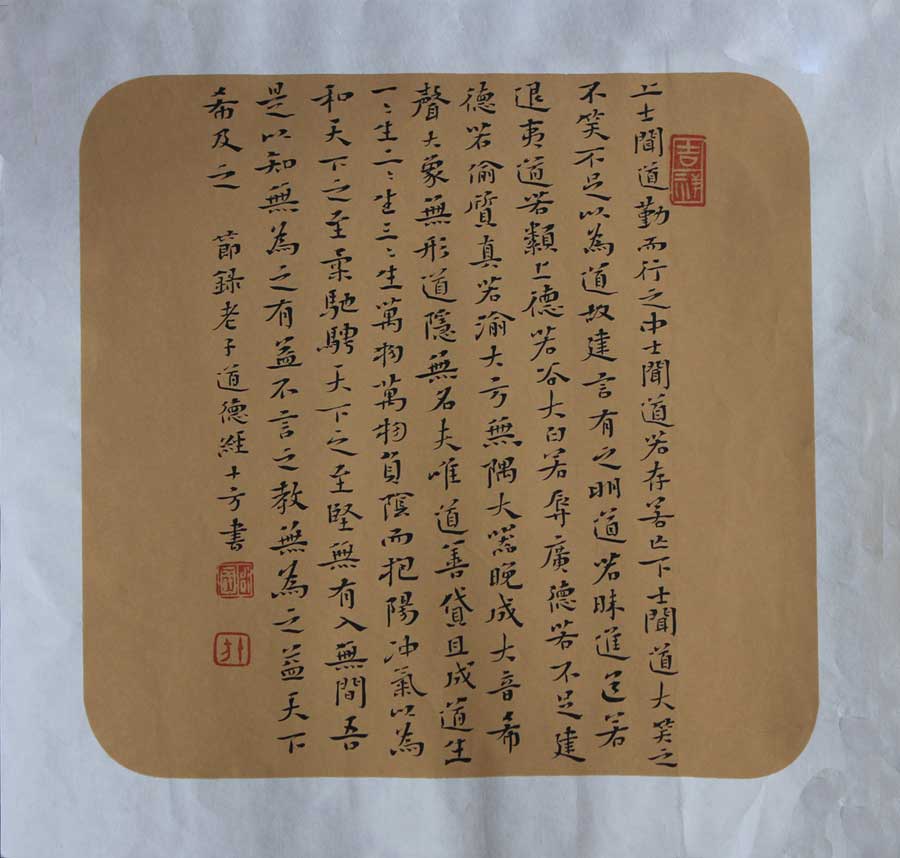 吉祥
上士聞道勤而行之中士聞道若存若亡下士聞道大笑之
不笑不足以為道故建言有之明道若昧進道若
退夷道若纇上德若谷大白若辱廣德若不足建
德若偷質真若渝大方無隅大器晚成大音希
聲大象無形道隱無名夫唯道善貸且成道生
一〻生二〻生三〻生萬物萬物負陰而抱陽冲氣以為
和天下之至柔馳騁天下之至堅無有入無間吾
是以知無為之有益不言之教無為之益天下
希及之 節録老子道德經十方書